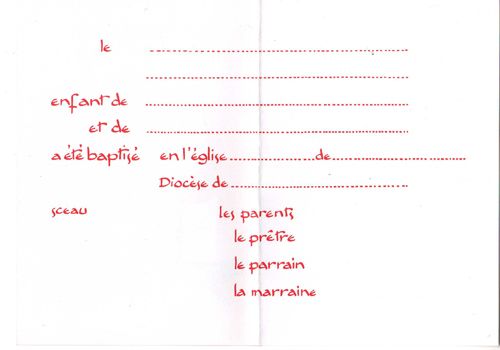 le
enfant de
et de
a été baptisé en l'église de
Diocèse de
sceau les parents
le prêtre
le parrain
la marraine